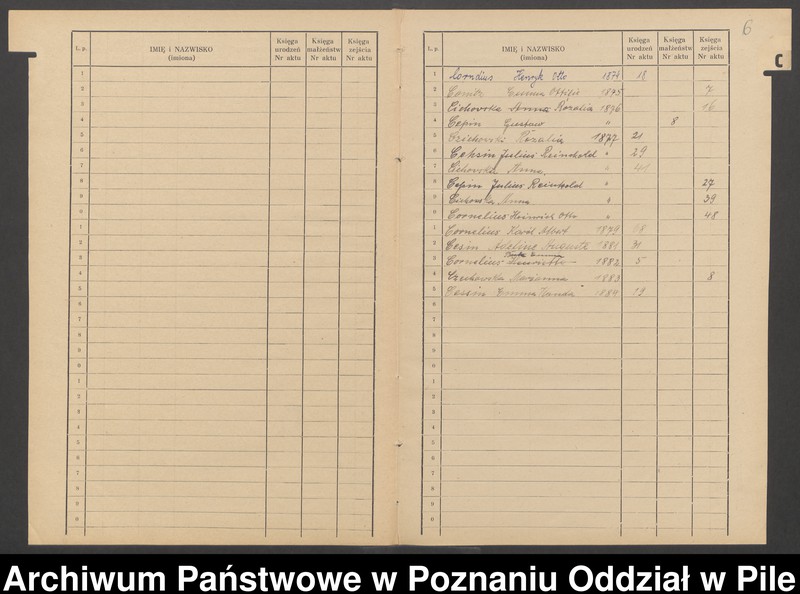 6
C
L. p. IMIĘ i NAZWISKO (imiona) Księga urodzeń Nr aktu Księga małżeństw Nr aktu Księga zejścia Nr aktu
L. p. IMIĘ i NAZWISKO (imiona) Księga urodzeń Nr aktu Księga małżeństw Nr aktu Księga zejścia Nr aktu
1 Cornelius Henryk Otto 1874 18
2 Emma Ottilie 1875 7
3 Cichowska Anna Rozalia 1876 16
4 Cepin Gustaw " 8
5 Rozalia 1877 21
6 Julius Reinhold " 29
7 Cichowska Anna " 41
8 Cepin Julius Reinhold " 27
9 Cichowska Anna " 39
0 Cornelius Heinrich Otto " 48
1 Cornelius Karl Albert 1879
2 Adeline Auguste 1881 31
3 Cornelius 1882 5
4 Marianna 1883 8
5 Emma 1884 19
6
7
8
9
0
1
2
3
4
5
6
7
8
9
0
Archiwum Państwowe w Poznaniu Oddział w Pile